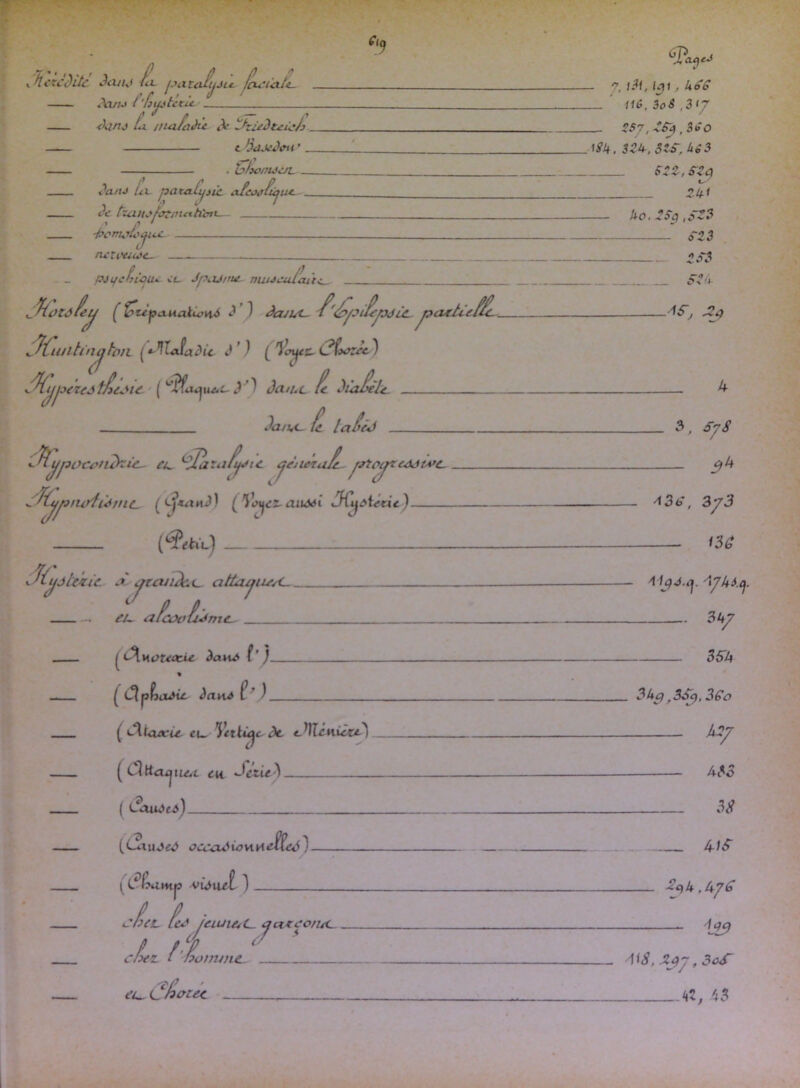 619
Pages
Hérédité dans la paralysie faciale 7, 131, 191, 466
— dans l'hystérie 116, 308, 317
— dans la maladie de Friedreich 257, 259, 360
— — Basedow 184, 324, 325, 463
— — Thomsen 522, 529
— dans la paralysie alcoolique 241
— de transformation 40, 259, 523
— homologue 523
— nerveuse 253
— psychique et spasme musculaire 524
Horsley (Trépanations d') dans l'épilepsie partielle 15, 29
Huntington (Maladie d') (Voyez Chorée)
Hyperesthésie (Plaques d') dans le diabète 4
— dans le tabès 3, 578
Hypocondrie et Paralysie générale progressive 94
Hypnotisme (Grand) (Voyez aussi Hystérie) 136, 373
— (Petit) 136
Hystérie à grandes attaques 119 s.q. 174 s.q.
— et alcoolisme 347
— (Anorexie dans l') 354
— (Aphasie dans l') 349, 359, 360
— (Ataxie et Vertige de Ménière) 427
— (Attaques en Série) 483
— (Causes) 38
— (Causes occasionnelles) 415
— (Champ visuel) 294, 476
— chez les jeunes garçons 199
— chez l'homme 118, 297, 305
— et Chorée 42, 43